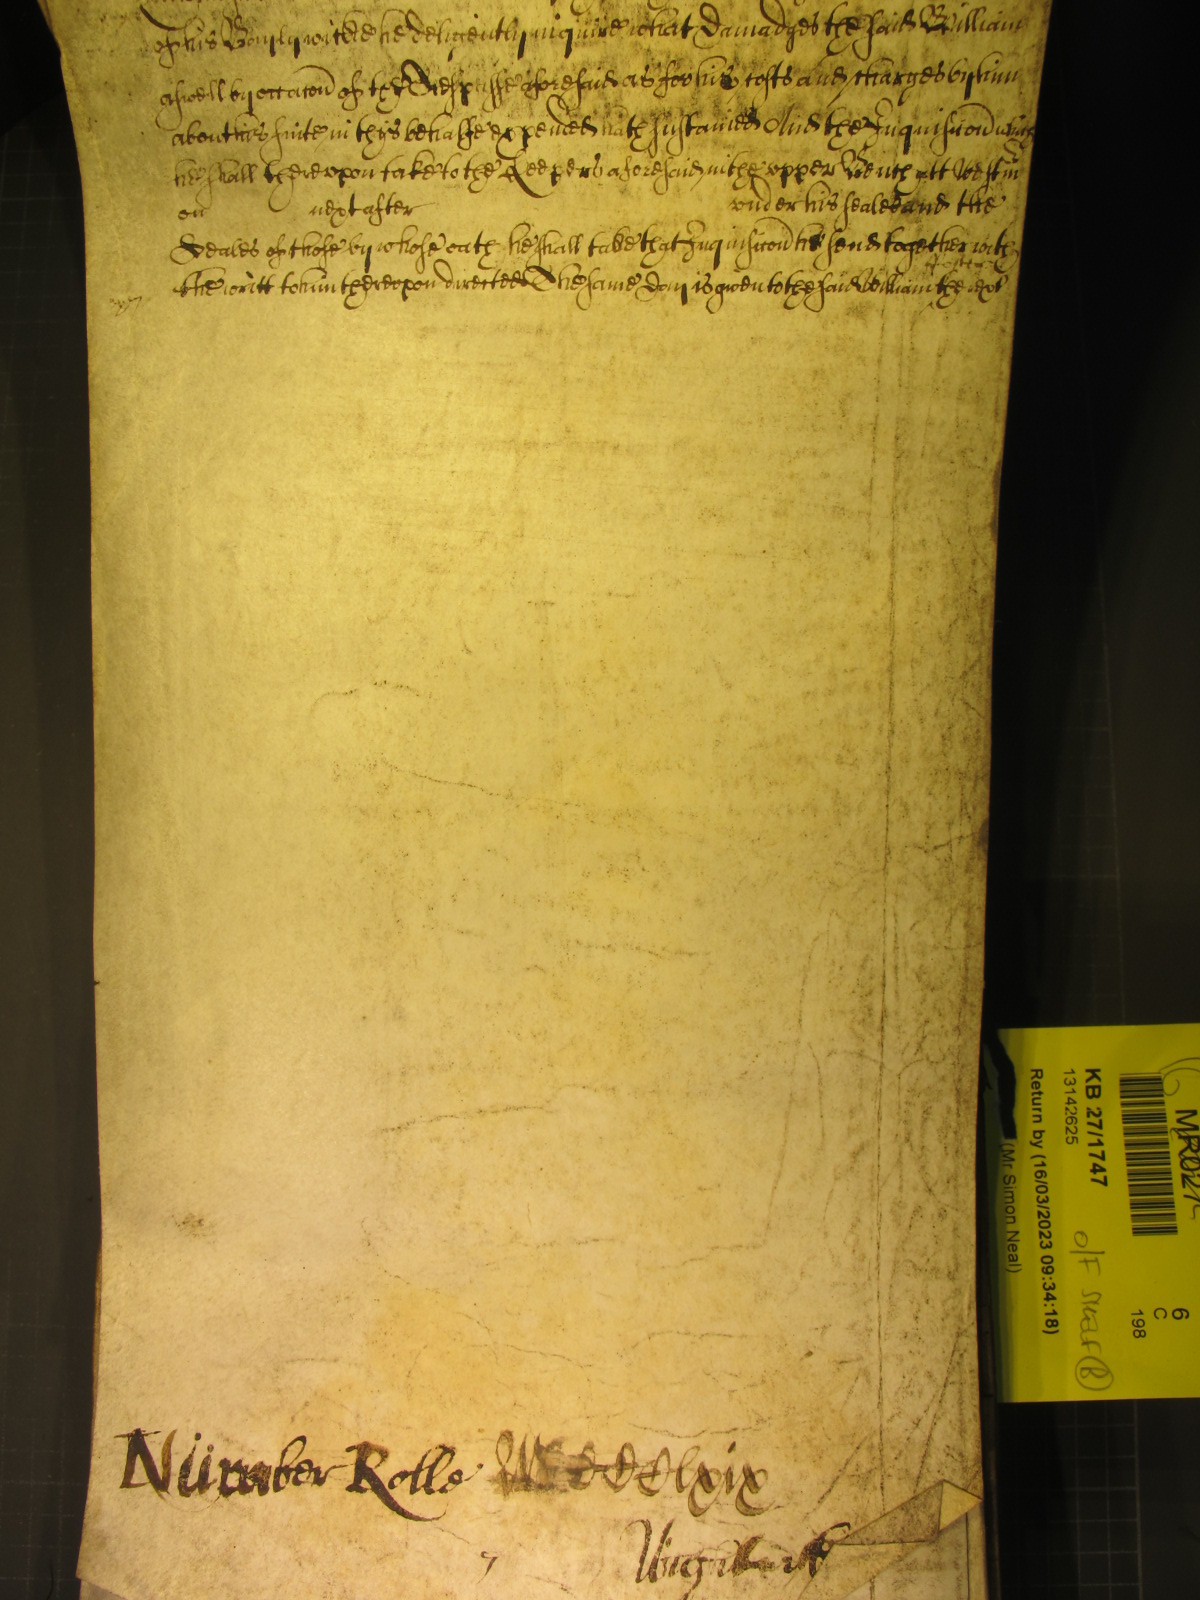 of his Countij wittke he deligently inquire what Damadges the said William
aswell by occacon of the Trespasse aforesaid as for his costs and charges by him
about his suite in thys behalfe expended hath sustained And the Inquisicon which
he shall thereupon take to the Keepers aforesaid in the upper Bench att Westm
on next after under his seale and the
Seales of those by whose oath he shall take that Inquisicon he send together with
the writt to him thereupon directed The same day is given to the said William there &c
Number Rolle MCCCClxix
KB 27/1747
13142625
Return by (16/03/2023 09:34:18)
(Mr Simon Neal)
6
C
198